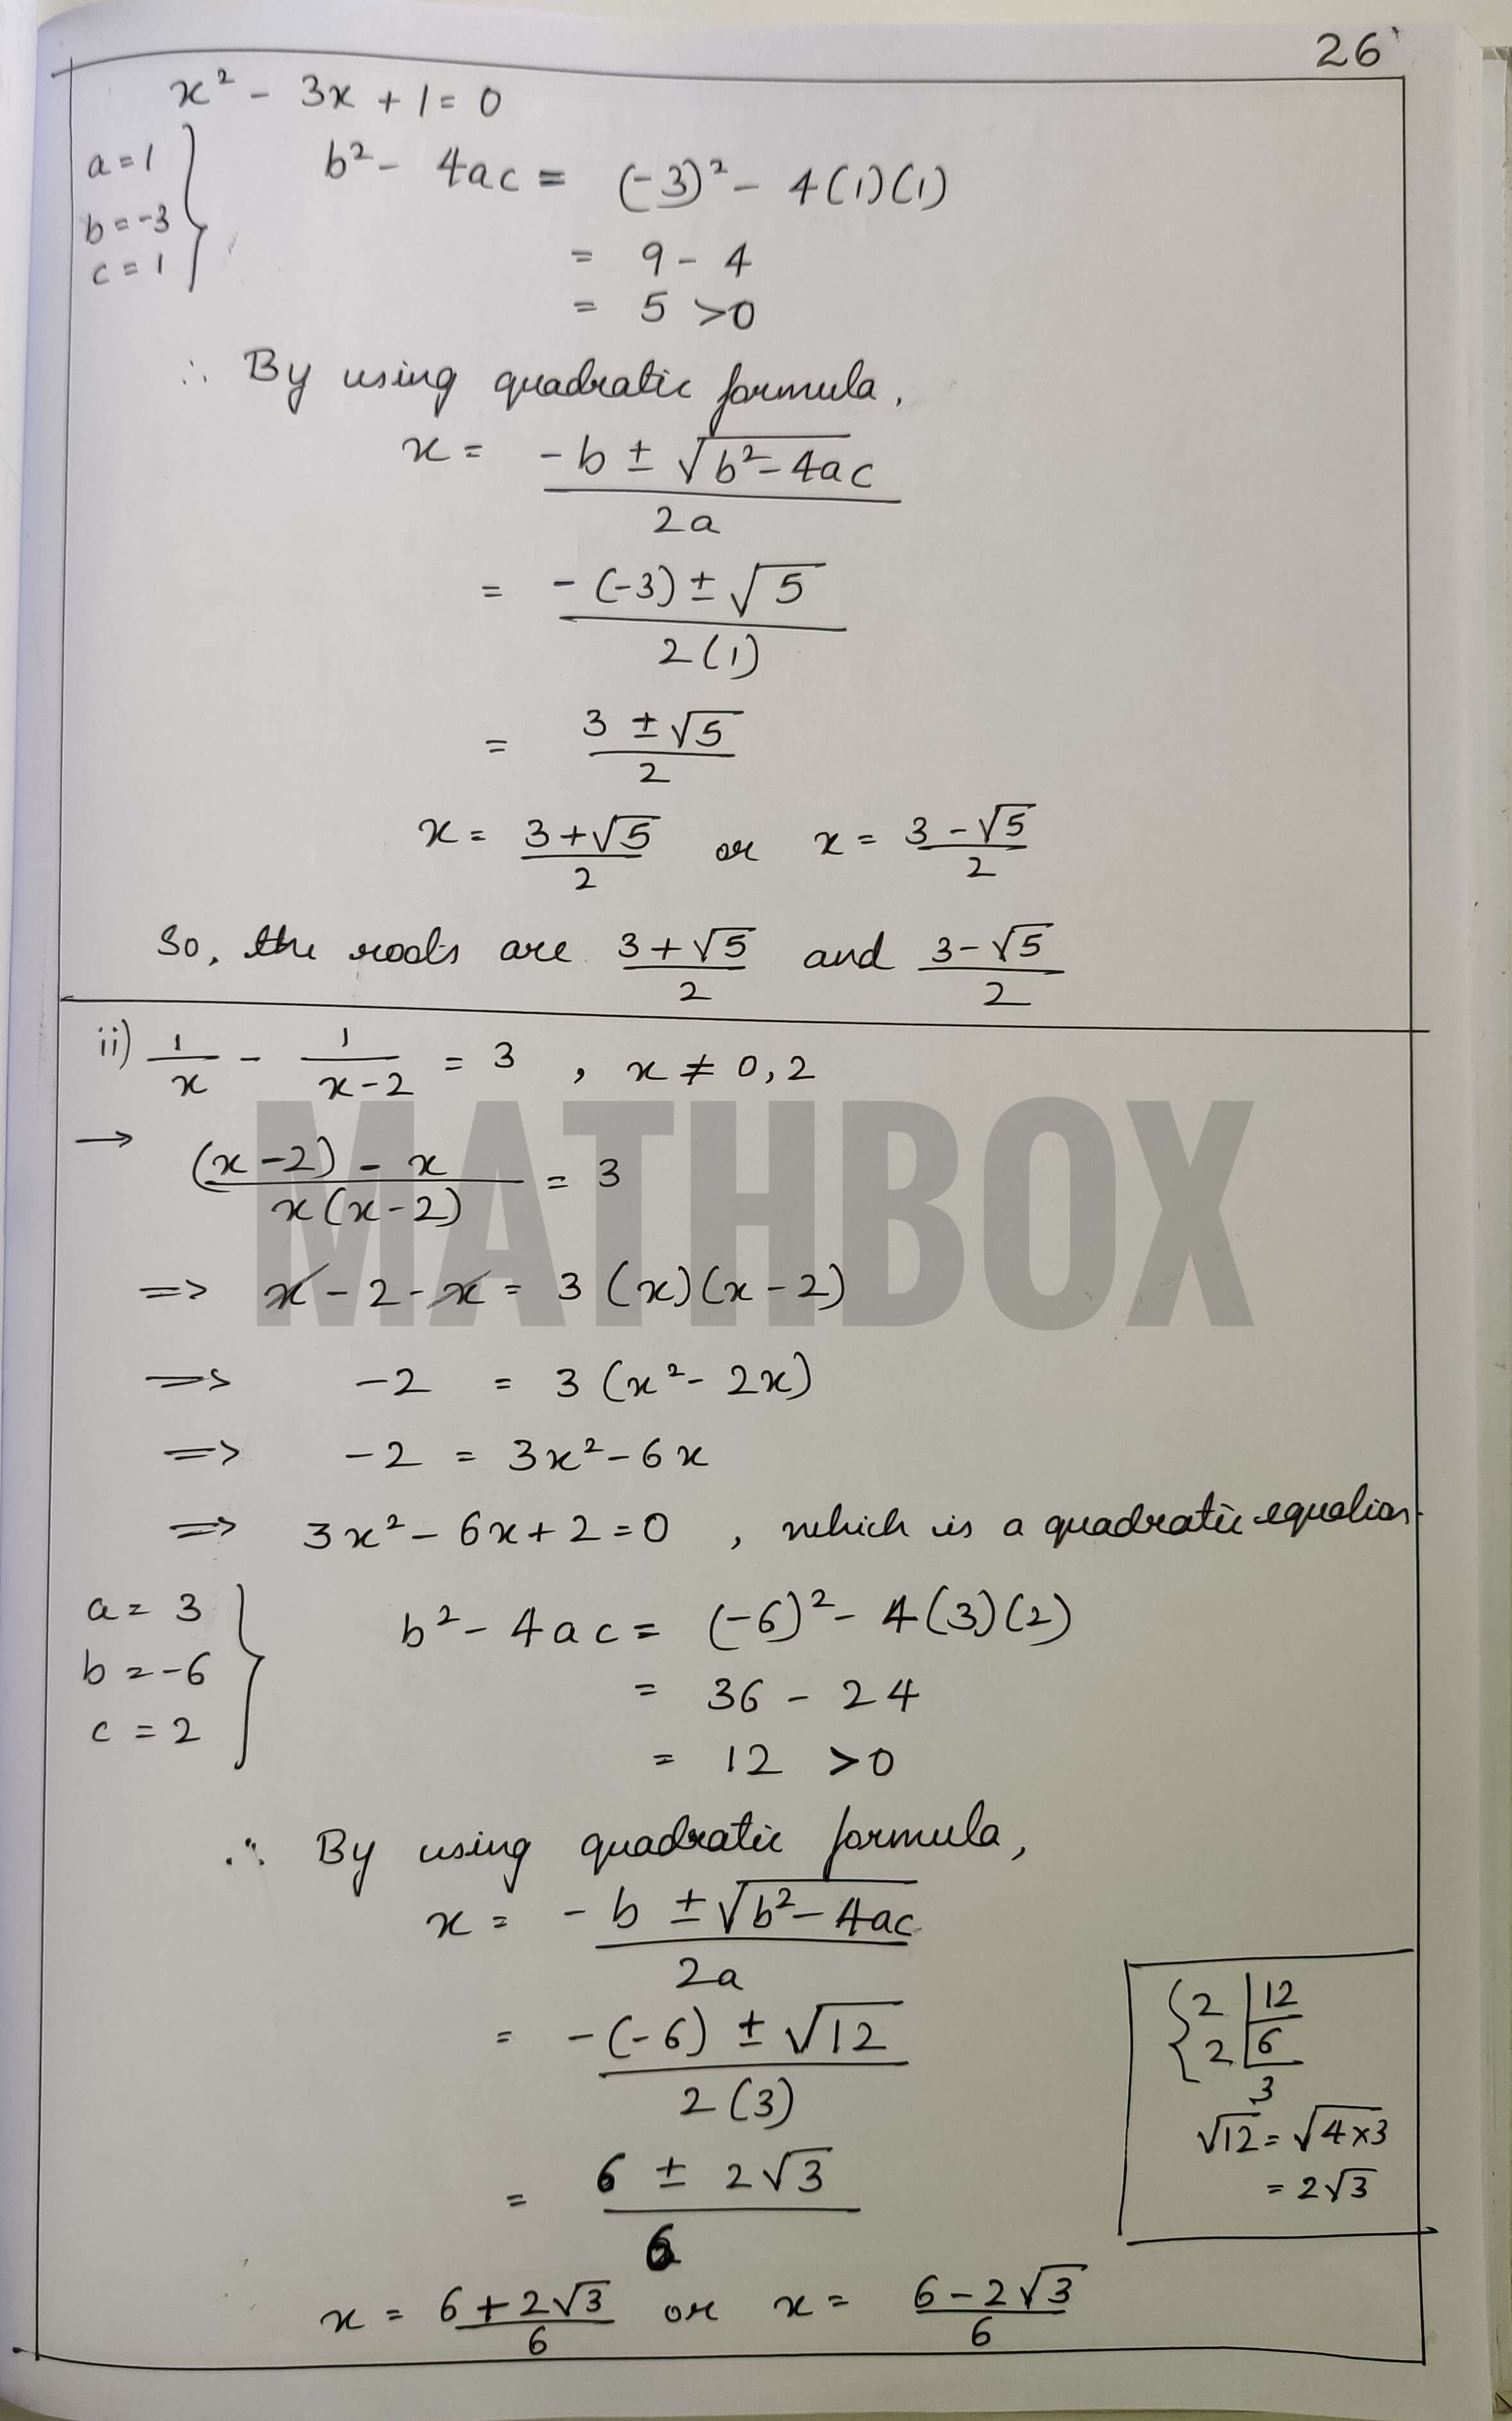 26
x² - 3x + 1 = 0
a = 1
b = -3
c = 1
b² - 4ac = (-3)² - 4(1)(1)
= 9 - 4
= 5 >0
∴ By using quadratic formula,
x = -b ± √b²-4ac / 2a
= -(-3) ± √5 / 2(1)
= 3 ± √5 / 2
x = 3+√5 / 2 or x = 3-√5 / 2
So, the roots are 3+√5 / 2 and 3-√5 / 2
ii) 1/x - 1/x-2 = 3 , x ≠ 0,2
→ (x-2) - x / x(x-2) = 3
=> x - 2 - x = 3(x)(x-2)
=> -2 = 3(x² - 2x)
=> -2 = 3x² - 6x
=> 3x² - 6x + 2 = 0 , which is a quadratic equation.
a = 3
b = -6
c = 2
b² - 4ac = (-6)² - 4(3)(2)
= 36 - 24
= 12 >0
∴ By using quadratic formula,
x = -b ± √b²-4ac / 2a
= -(-6) ± √12 / 2(3)
= 6 ± 2√3 / 6
x = 6+2√3 / 6 or x = 6-2√3 / 6
2 | 12
2 | 6
3
√12 = √4×3
= 2√3
MATHBOX